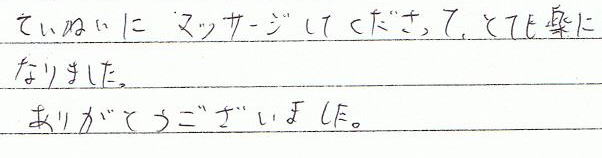 ていねいに マッサージしてくださって、とても楽に
なりました。
ありがとうございました。